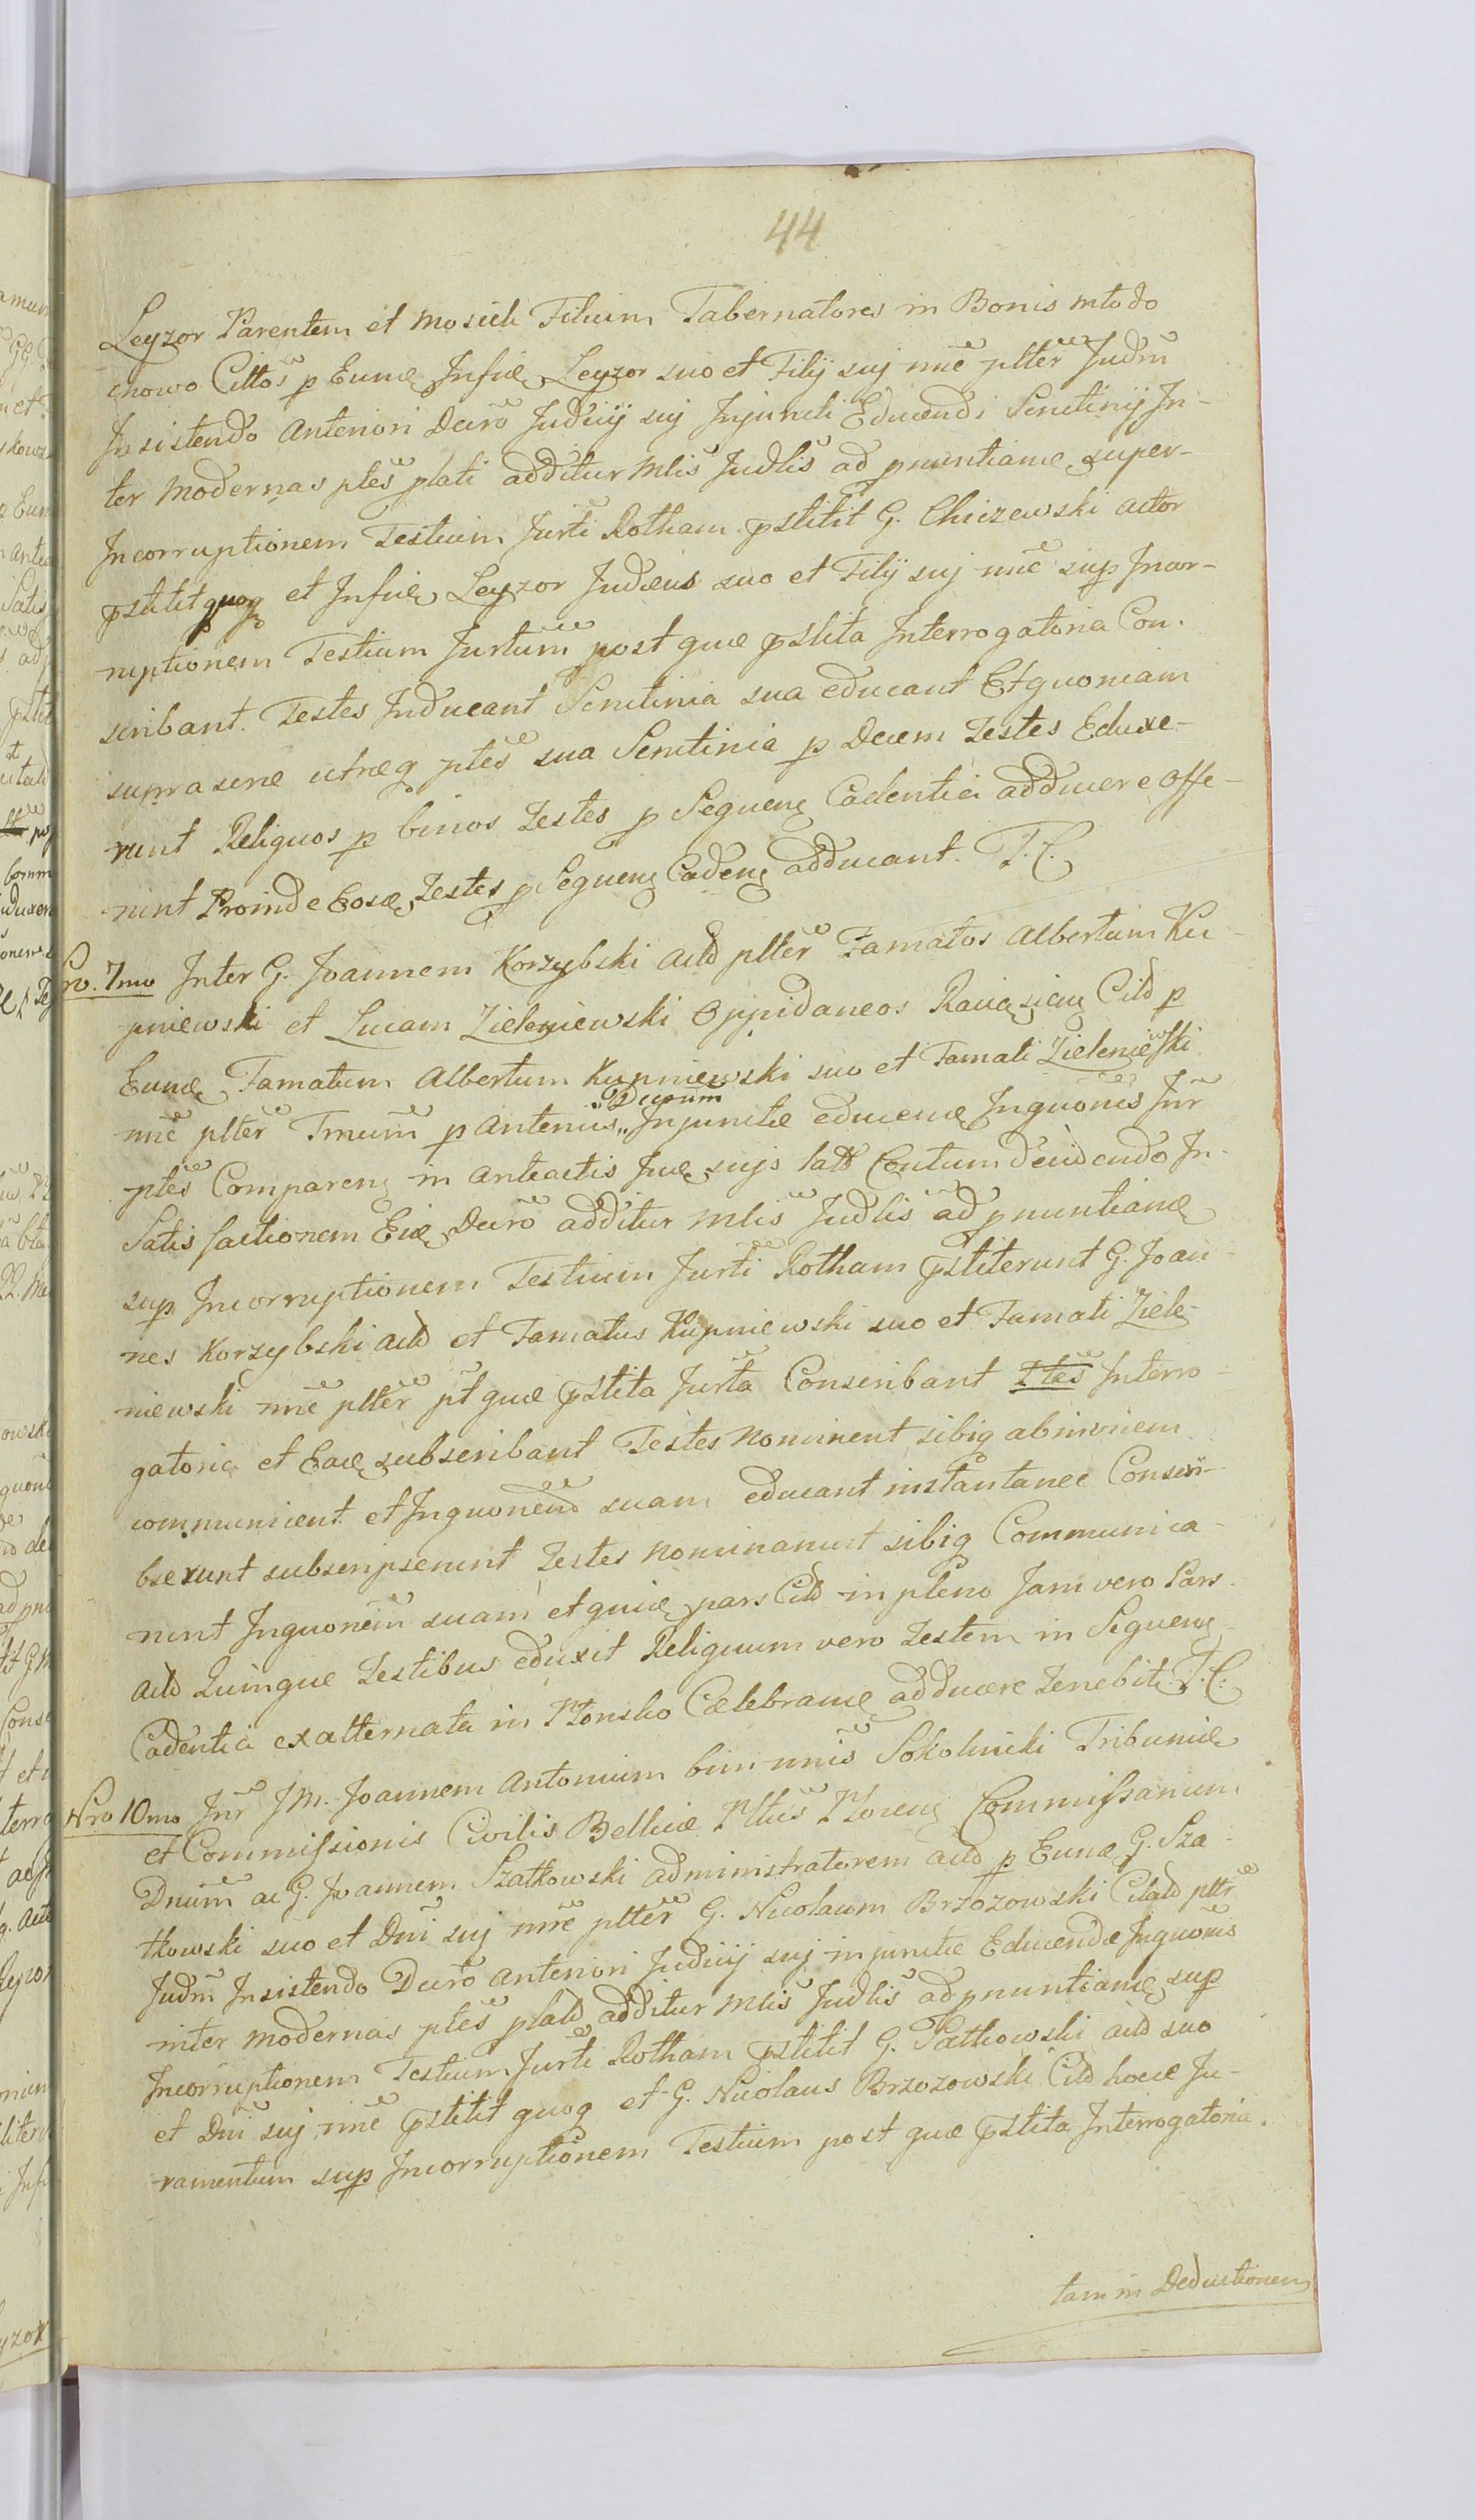 44
Leyzor Parentem et Mosiek Filium Tabernatores in Bonis Młodo
chowo Cittõs p Eund Infid Leyzor suo et Filij suj nñe pltẽr Judm̃
Insistendo Anteriori Decrõ Judicij suj Injuncti Educendi Scrutinij In-
ter modernas ptẽs plati additur Mliš Judliš ad pnuntiand super-
Incorruptionem Testium Jurti Rotham pstitit G. Chiczewski actor
pstitit quoq et Infid Leyzor Judæus suo et Filij suj nñe sup Incor-
ruptionem Testium Jurtum̃ post quæ pstita Interrogatoria Con-
scribant. Testes Inducant Scrutinia sua educant Et quoniam
supra scrie utræq ptẽs sua Scrutinia p Decem Testes Eduxe-
runt Reliquos p binos Testes p Sequen Cadentia adducere offe-
runt Proinde Eosd Testes p Sequen Caden adducant. T. C.
Nro. 7mo Inter G. Joannem Korzybski Actd pltẽr Famatos Albertum Ku-
pniewski et Lucam Zieleniewski Oppidaneos Raciąscien Citd p
Eund Famatum Albertum Kupniewski suo et Famati Zieleniewski
nñe pltẽr Tmum̃ p Anterius „Decrum̃ Injunctæ educend Inquõnis Inr̃
ptẽs Comparen in anteactis Jud sujs latt Contum decidendo In-
Satisfactionem Eid Decrõ additur Mliš Judliš ad pnuntiand
sup Incorruptionem Testium Jurti Rotham pstiterunt G. Joan-
nes Korzybski Actd et Famatus Kupniewski suo et Famati Ziele-
niewski nñe pltẽr pt̃ quæ pstita Jurtã Conscribant Ptẽs Interro-
gatoria et Ead subscribant Testes Nominent sibiq abinvicem
communicent et Inquonẽnd suam educant instantanee Conscri-
bserunt subscripserunt Testes nominarunt sibiq Communica-
runt Inquonẽm suam et quid pars Citd in pleno Jam vero Pars
Actd Quinque Testibus eduxit Reliquum vero Testem in Sequen
Cadentia exalternata in Płonsko Celebrand adducere tenebit. T. C.
Nro 10mo Inr̃ J M. Joannem Antonium bin nñis Sokolnicki Tribunid
et Commissionis Civilis Bellicæ Pltus Plocen Commissarium
Dnum̃ ac G. Joannem Szatkowski administratorem Actd p Eund G. Sza-
tkowski suo et Dni suj nñe pltẽr G. Nicolaum Brzozowski Citatd pltr̃
Judm̃ Insistendo Decrõ Anteriori Judicij suj injunctæ Educendæ Inquõnis
inter modernas ptẽs platd additur Mliš Judliš ad pnuntiand sup
Incorruptionem Testium Jurti Rotham pstitit G. Satkowski Actd suo
et Dni suj nñe pstitit quoq et G. Nicolaus Brzozowski Citd hocce Ju-
ramentum sup Incorruptionem Testium post quæ pstita Interrogatoria.
tam in Deductionem